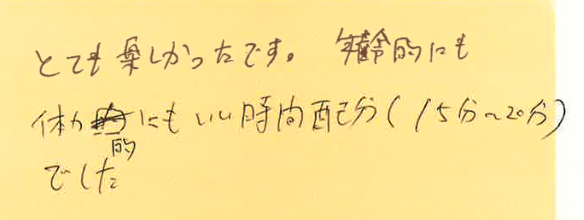 とても楽しかったです。年齢的にも
体力的にもいい時間配分(15分~20分)
でした